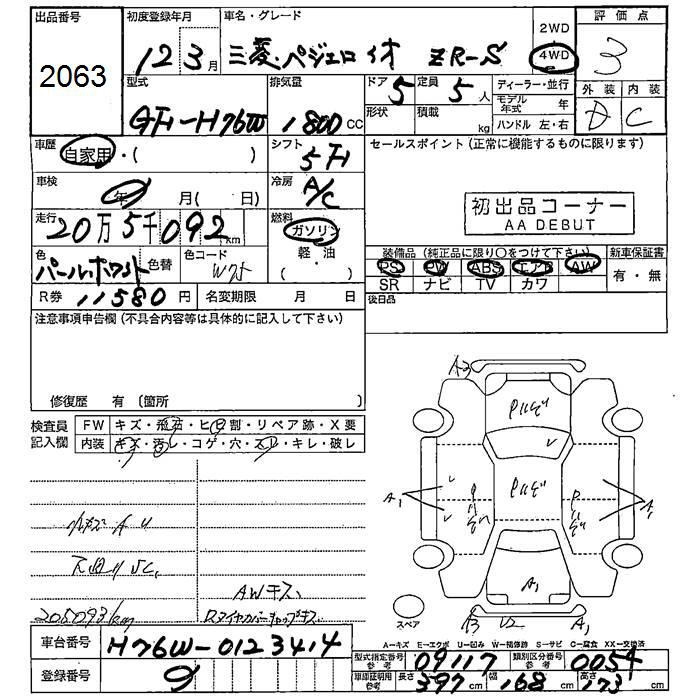 出品番号
2063
初度登録年月
12 3月
車名・グレード
三菱・パジェロイオ ZR-S
2WD
4WD
評価点
3
外装 内装
D C
型式
GH-H76W
排気量
1800 CC
ドア 5
形状
定員 5 人
積載 kg
ディーラー・並行
モデル年式 年
ハンドル 左・右
車歴
自家用・( )
シフト
5F
セールスポイント (正常に機能するものに限ります)
車検
年 月( 日)
冷房
A/C
初出品コーナー
AA DEBUT
走行
20万5千092km
燃料
ガソリン
軽・油
( )
色
パールホワイト
色替
色コード
装備品 (純正品に限り○をつけて下さい)
PS PW ABS エアB AW
SR ナビ TV カワ
新車保証書
有・無
R券 11580円
名変期限 月 日
後日品
注意事項申告欄 (不具合内容等は具体的に記入して下さい)
修復歴 有 (箇所 )
検査員記入欄
FW キズ・飛石・ヒビ割・リペア跡・X要
内装 キズ・汚レ・コゲ・穴・スレ・キレ・破レ
A2
A1
A1
A1
U2
A1
スペア
AWキズ
205093km
スタイヤカバーキャップキズ
A-キズ E-エクボ U-凹み W-補修跡 S-サビ C-腐食 XX-交換済
車台番号
H76W-0123414
登録番号
型式指定番号
参考
09117
類別区分番号
参考
0054
車庫証明用
参考
長さ 397cm
幅 168cm
高さ 173cm